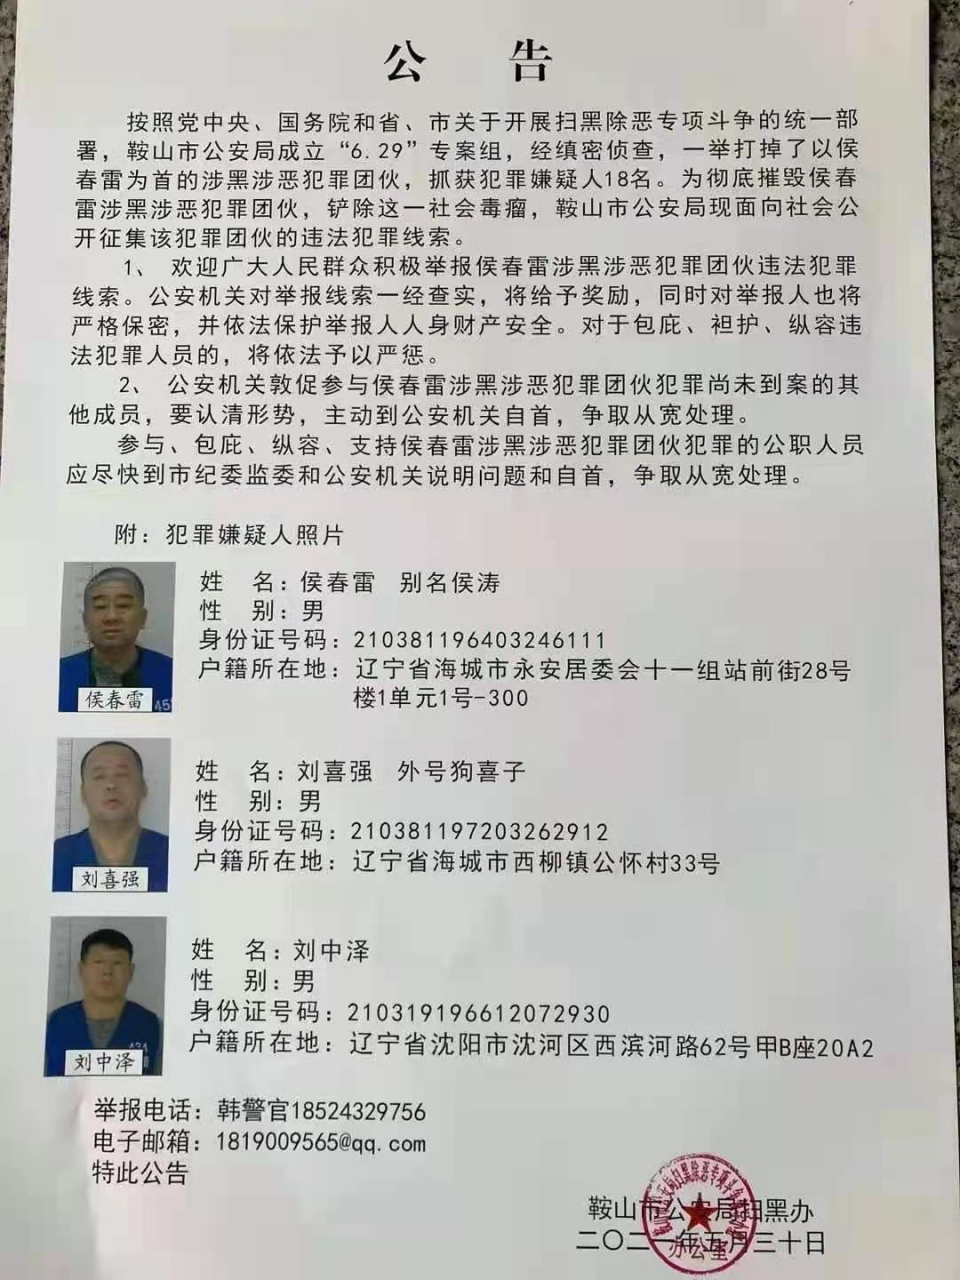 公 告
按照党中央、国务院和省、市关于开展扫黑除恶专项斗争的统一部
署，鞍山市公安局成立“6.29”专案组，经缜密侦查，一举打掉了以侯
春雷为首的涉黑涉恶犯罪团伙，抓获犯罪嫌疑人18名。为彻底摧毁侯春
雷涉黑涉恶犯罪团伙，铲除这一社会毒瘤，鞍山市公安局现面向社会公
开征集该犯罪团伙的违法犯罪线索。
1、 欢迎广大人民群众积极举报侯春雷涉黑涉恶犯罪团伙违法犯罪
线索。公安机关对举报线索一经查实，将给予奖励，同时对举报人也将
严格保密，并依法保护举报人人身财产安全。对于包庇、袒护、纵容违
法犯罪人员的，将依法予以严惩。
2、 公安机关敦促参与侯春雷涉黑涉恶犯罪团伙犯罪尚未到案的其
他成员，要认清形势，主动到公安机关自首，争取从宽处理。
参与、包庇、纵容、支持侯春雷涉黑涉恶犯罪团伙犯罪的公职人员
应尽快到市纪委监委和公安机关说明问题和自首，争取从宽处理。
附：犯罪嫌疑人照片
侯春雷
姓 名：侯春雷 别名侯涛
性 别：男
身份证号码：210381196403246111
户籍所在地：辽宁省海城市永安居委会十一组站前街28号
楼1单元1号-300
刘喜强
姓 名：刘喜强 外号狗喜子
性 别：男
身份证号码：210381197203262912
户籍所在地：辽宁省海城市西柳镇公怀村33号
刘中泽
姓 名：刘中泽
性 别：男
身份证号码：210319196612072930
户籍所在地：辽宁省沈阳市沈河区西滨河路62号甲B座20A2
举报电话：韩警官18524329756
电子邮箱：1819009565@qq.com
特此公告
鞍山市公安局扫黑办
二〇二一年五月三十日
办公室